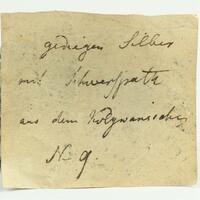 gediegen Silber
mit Schwerspath
aus dem Kolywanischen
N. 9.